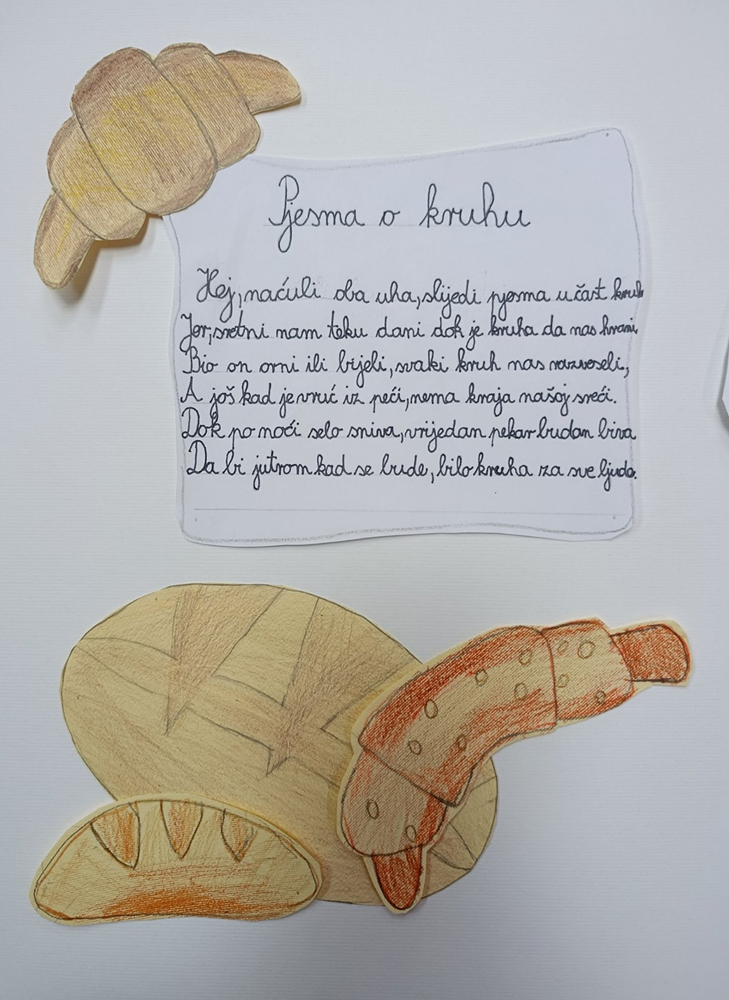 Pjesma o kruhu
Hej, naćuli oba uha, slijedi pjesma u čast kruh
Jer, sretni nam teku dani dok je kruha da nas hrani,
Bio on crni ili bijeli, svaki kruh nas razveseli,
A još kad je vruć iz peći, nema kraja našoj sreći.
Dok po noći selo sniva, vrijedan pekar budan biva
Da bi jutrom kad se bude, bilo kruha za sve ljude.